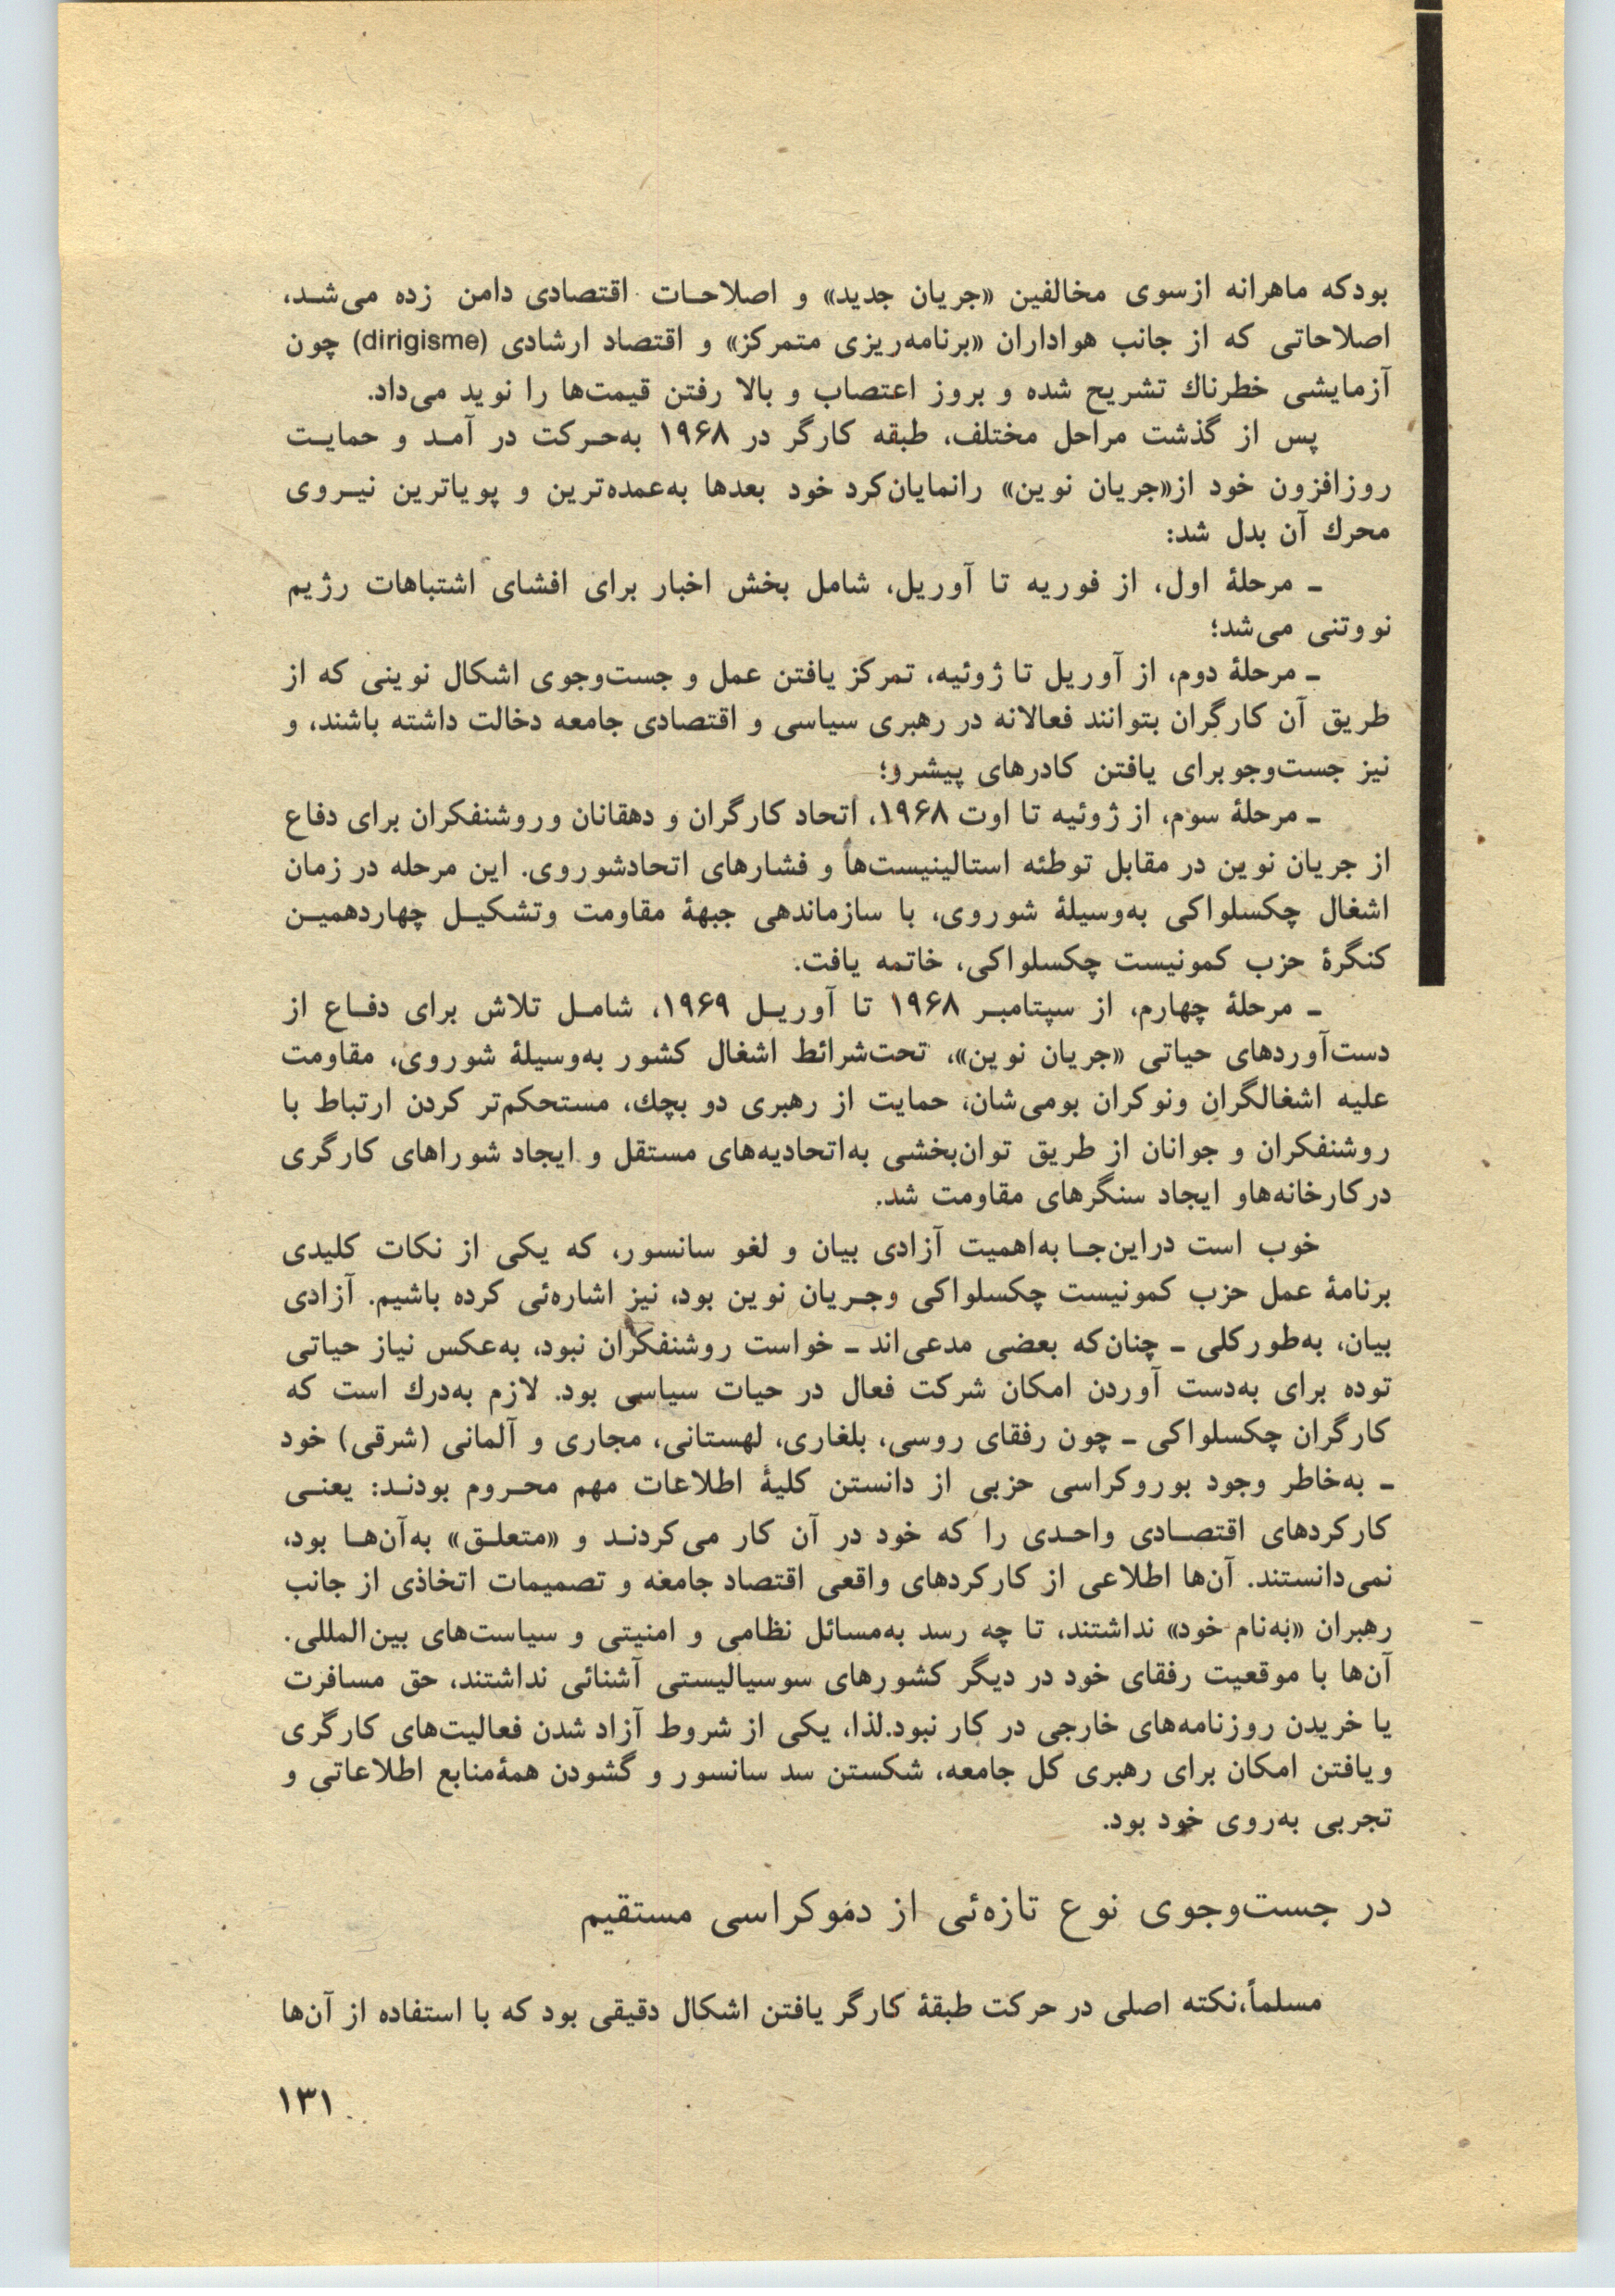 بودکه ماهرانه ازسوی مخالفین «جریان جدید» و اصلاحـات اقتصادی دامن زده می‌شـد،
اصلاحاتی که از جانب هواداران «برنامه‌ریزی متمرکز» و اقتصاد ارشادی (dirigisme) چون
آزمایشی خطرناك تشریح شده و بروز اعتصاب و بالا رفتن قیمت‌ها را نوید می‌داد.
پس از گذشت مراحل مختلف، طبقه کارگر در ۱۹۶۸ به‌حـرکت در آمـد و حمایـت
روزافزون خود از«جریان نوین» رانمایان‌کرد خود بعدها به‌عمده‌ترین و پویاترین نیـروی
محرك آن بدل شد:
ـ مرحلهٔ اول، از فوریه تا آوریل، شامل بخش اخبار برای افشای اشتباهات رژیم
نووتنی می‌شد؛
ـ مرحلهٔ دوم، از آوریل تا ژوئیه، تمرکز یافتن عمل و جست‌وجوی اشکال نوینی که از
طریق آن کارگران بتوانند فعالانه در رهبری سیاسی و اقتصادی جامعه دخالت داشته باشند، و
نیز جست‌وجو برای یافتن کادرهای پیشرو؛
ـ مرحلهٔ سوم، از ژوئیه تا اوت ۱۹۶۸، اتحاد کارگران و دهقانان وروشنفکران برای دفاع
از جریان نوین در مقابل توطئه استالینیست‌ها و فشارهای اتحادشوروی. این مرحله در زمان
اشغال چکسلواکی به‌وسیلهٔ شوروی، با سازماندهی جبههٔ مقاومت وتشکیـل چهاردهمیـن
کنگرهٔ حزب کمونیست چکسلواکی، خاتمه یافت.
ـ مرحلهٔ چهارم، از سپتامبـر ۱۹۶۸ تا آوریـل ۱۹۶۹، شامـل تلاش برای دفـاع از
دست‌آوردهای حیاتی «جریان نوین»، تحت‌شرائط اشغال کشور به‌وسیلهٔ شوروی، مقاومت
علیه اشغالگران ونوکران بومی‌شان، حمایت از رهبری دو بچك، مستحکم‌تر کردن ارتباط با
روشنفکران و جوانان از طریق توان‌بخشی به‌اتحادیه‌های مستقل و ایجاد شوراهای کارگری
درکارخانه‌هاو ایجاد سنگرهای مقاومت شد.
خوب است دراین‌جـا به‌اهمیت آزادی بیان و لغو سانسور، که یکی از نکات کلیدی
برنامهٔ عمل حزب کمونیست چکسلواکی وجـریان نوین بود، نیز اشاره‌ئی کرده باشیم. آزادی
بیان، به‌طورکلی ـ چنان‌که بعضی مدعی‌اند ـ خواست روشنفکران نبود، به‌عکس نیاز حیاتی
توده برای به‌دست آوردن امکان شرکت فعال در حیات سیاسی بود. لازم به‌درك است که
کارگران چکسلواکی ـ چون رفقای روسی، بلغاری، لهستانی، مجاری و آلمانی (شرقی) خود
ـ به‌خاطر وجود بوروکراسی حزبی از دانستن کلیهٔ اطلاعات مهم محـروم بودنـد: یعنـی
کارکردهای اقتصـادی واحـدی را که خود در آن کار می‌کردنـد و «متعلـق» به‌آن‌هـا بود،
نمی‌دانستند. آن‌ها اطلاعی از کارکردهای واقعی اقتصاد جامعه و تصمیمات اتخاذی از جانب
رهبران «به‌نام خود» نداشتند، تا چه رسد به‌مسائل نظامی و امنیتی و سیاست‌های بین‌المللی.
آن‌ها با موقعیت رفقای خود در دیگر کشورهای سوسیالیستی آشنائی نداشتند، حق مسافرت
یا خریدن روزنامه‌های خارجی در کار نبود.لذا، یکی از شروط آزاد شدن فعالیت‌های کارگری
ویافتن امکان برای رهبری کل جامعه، شکستن سد سانسور و گشودن همهٔ‌منابع اطلاعاتی و
تجربی به‌روی خود بود.
در جست‌وجوی نوع تازه‌ئی از دموکراسی مستقیم
مسلماً،نکته اصلی در حرکت طبقهٔ کارگر یافتن اشکال دقیقی بود که با استفاده از آن‌ها
۱۳۱